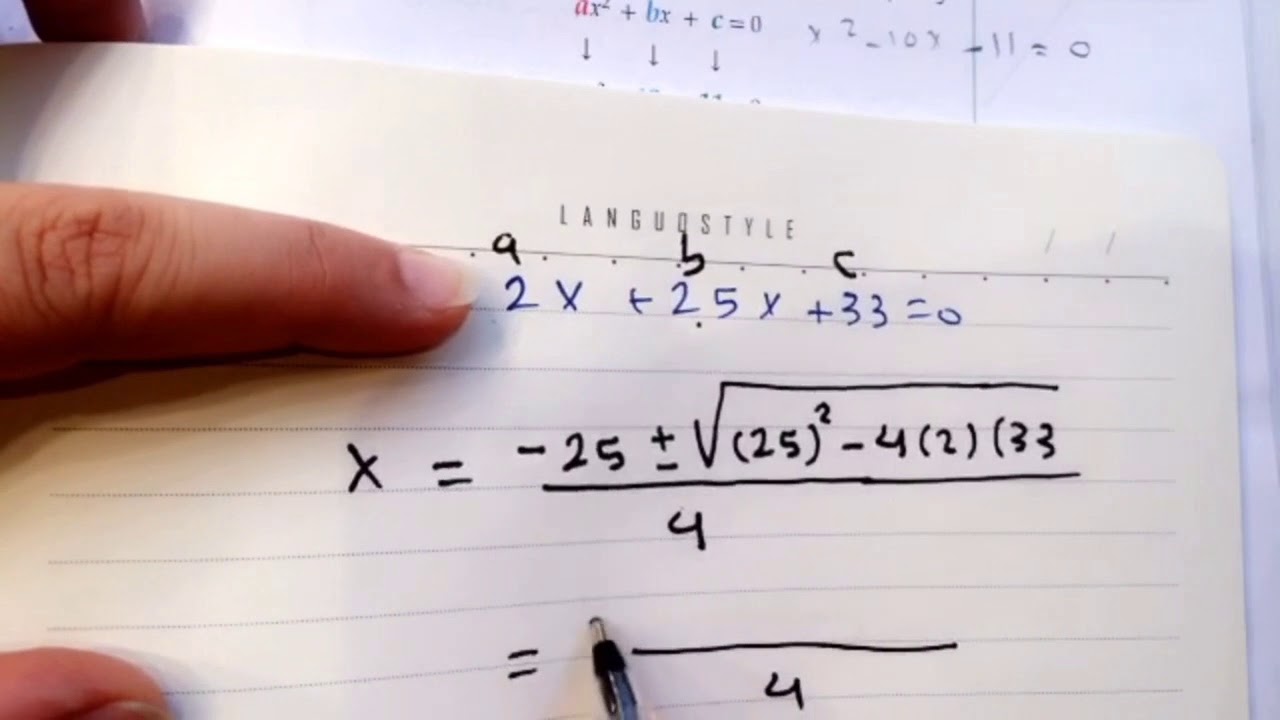 ax² + bx + c = 0 x² - 10x - 11 = 0
↓ ↓ ↓
LANGUOSTYLE
a b c
2x + 25x + 33 = 0
x = -25 ± √(25)² - 4(2)(33
4
=
4